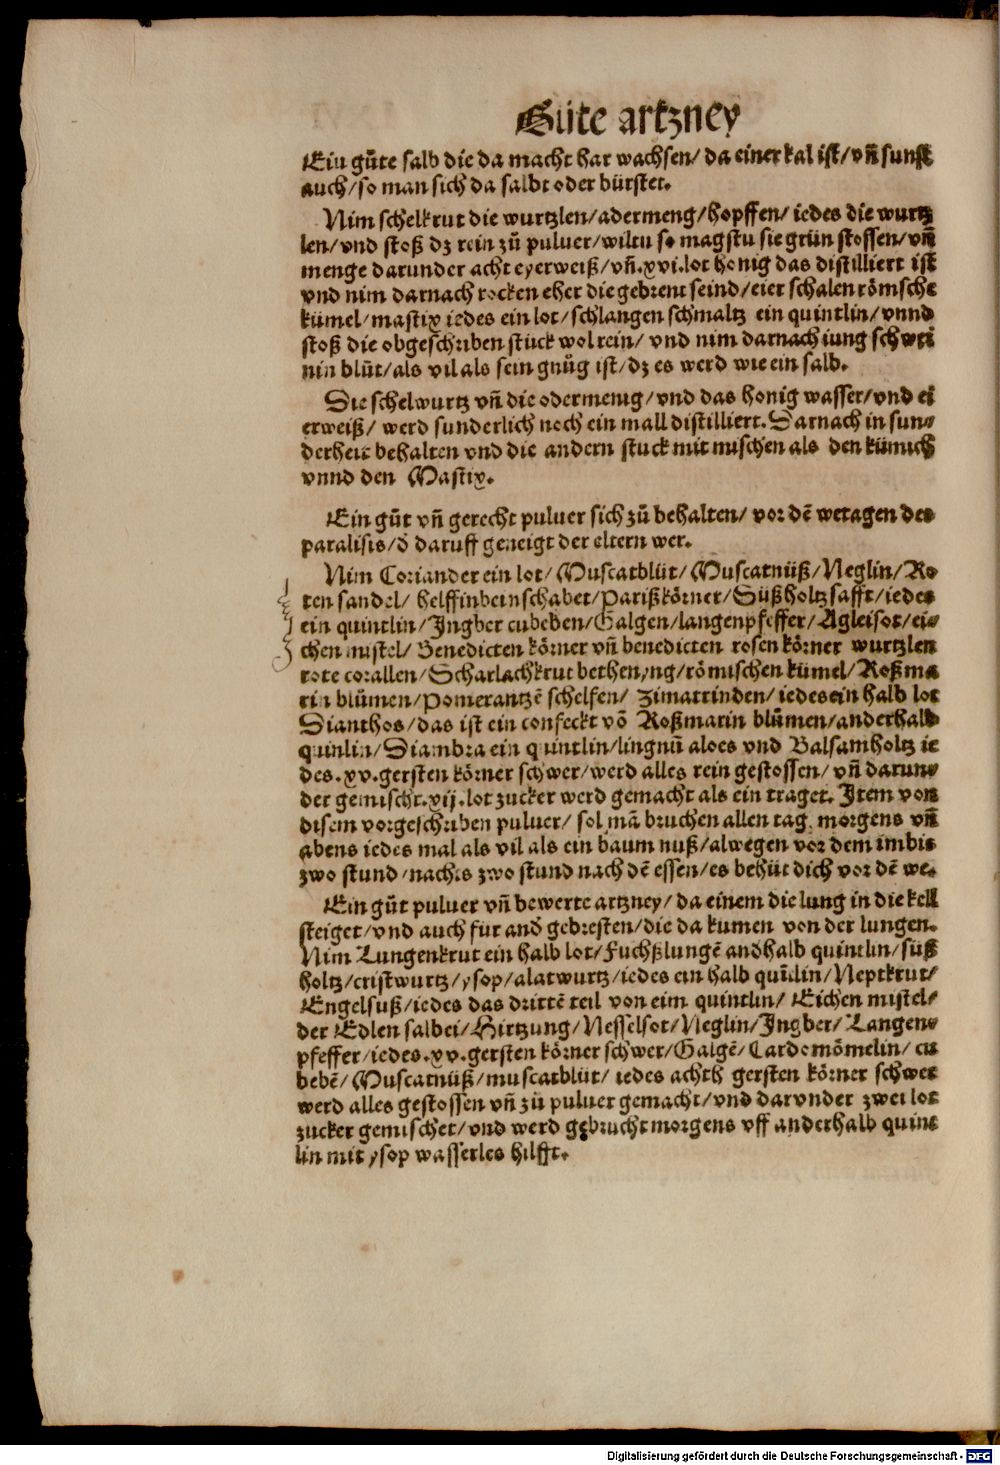 Gůte artzney
Ein gůte salb die da macht har wachsen/ da einer kal ist/ vñ sunst
auch/ so man sich da salbt oder bürstet.
Nim schelkrut die wurtzlen/ adermeng/ hopffen/ iedes die wurtz
len/ vnd stoß dz rein zů puluer/ wiltu so magstu sie grün stossen/ vñ
menge darunder acht eyerweiß/ vñ .xvi. lot honig das distilliert ist
vnd nim darnach rocken eher die gebrent seind/ eier schalen rômsche
kümel/ mastix iedes ein lot/ schlangen schmaltz ein quintlin/ vnnd
stoß die obgeschriben stück wol rein/ vnd nim darnach iung schwei
nin blůt/ als vil als sein gnůg ist/ dz es werd wie ein salb.
Die schelwurtz vñ die odermenig/ vnd das honig wasser/ vnd ei
erweiß/ werd sunderlich noch ein mall distilliert. Darnach in sun⸗
derheit behalten vnd die andern stuck mit mischen als den kümich
vnnd den Mastix.
Ein gůt vñ gerecht puluer sich zů behalten/ vor dẽ wetagen des
paralisis/ ð daruff geneigt der eltern wer.
Nim Coriander ein lot/ Muscatblüt/ Muscatnüß/ Neglin/ Ro
ten sandel/ helffinbein schabet/ Parißkörner/ Süßholtz safft/ iedes
ein quintlin/ Ingber cubeben/ Galgen/ langenpfeffer/ Agleisot/ ei⸗
chen mistel/ Benedicten körner vñ benedicten rosen körner wurtzlen
rote corallen/ Scharlachkrut bethenyng/ römischen kümel/ Roßma
rin blůmen/ Pomerantzẽ schelfen/ Zimatrinden/ iedes ein halb lot
Dianthos/ das ist ein confeckt võ Roßmarin blůmen/ anderhalb
quinlin/ Diambra ein quintlin/ lingnũ aloes vnd Balsamholtz ie
des .xv. gersten körner schwer/ werd alles rein gestossen/ vñ darun⸗
der gemischt .xij. lot zucker werd gemacht als ein traget. Item von
disem vorgeschriben puluer/ sol mã bruchen allen tag morgens vñ
abens iedes mal als vil als ein baum nuß/ alwegen vor dem imbis
zwo stund/ nachts zwo stund nach dẽ essen/ es behüt dich vor dẽ we.
Ein gůt puluer vñ bewerte artzney/ da einem die lung in die kell
steiget/ vnd auch für anð gebresten/ die da kumen von der lungen.
Nim Lungenkrut ein halb lot/ Fuchßlungẽ anðhalb quintlin/ süß
holtz/ cristwurtz/ ysop/ alatwurtz/ iedes ein halb quĩtlin/ Neptkrut/
Engelsuß/ iedes das drittẽ teil von eim quintlin/ Eichen mistel/
der Edlen salbei/ Hirtzung/ Nesselsot/ Neglin/ Ingber/ Langen⸗
pfeffer/ iedes .xv. gersten körner schwer/ Galgẽ/ Cardomõmelin/ cu
bebẽ/ Muscatnüß/ muscatblüt/ iedes achth gersten körner schwer
werd alles gestossen vñ zů puluer gemacht/ vnd darvnder zwei lot
zucker gemischet/ vnd werd gebrucht morgens vff anderhalb quint
lin mit ysop wasser/ es hilfft.
Digitalisierung gefördert durch die Deutsche Forschungsgemeinschaft - DFG